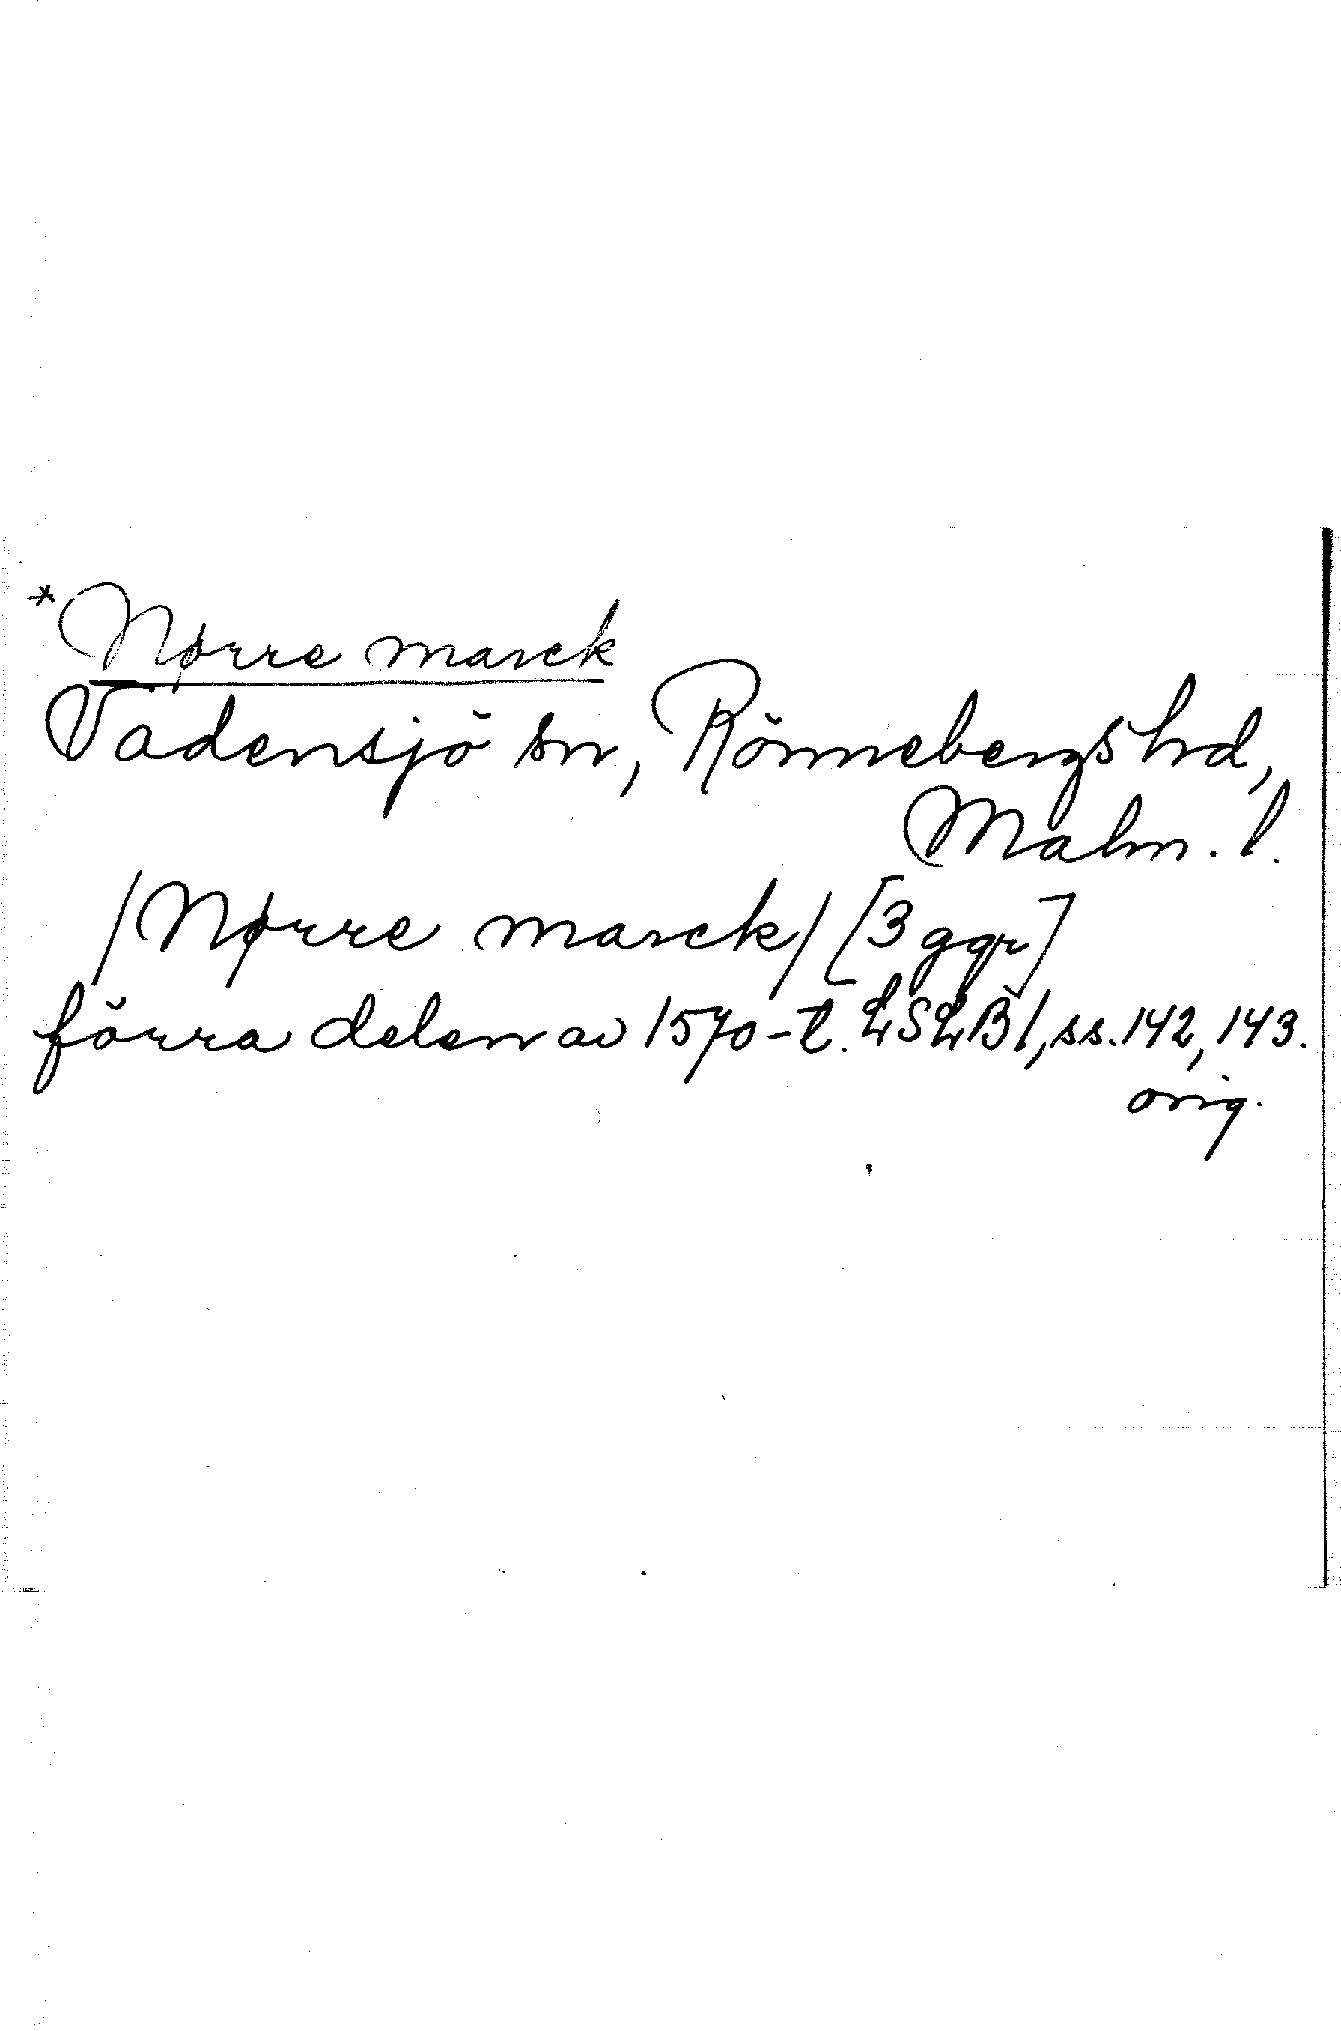 *Nørre marck
Vadensjö sn, Rönnebergs hd,
Malm. l.
/Nørre marck/ [3 ggr]
förra delen av 1570-t. LSLB1, ss. 142, 143.
orig.